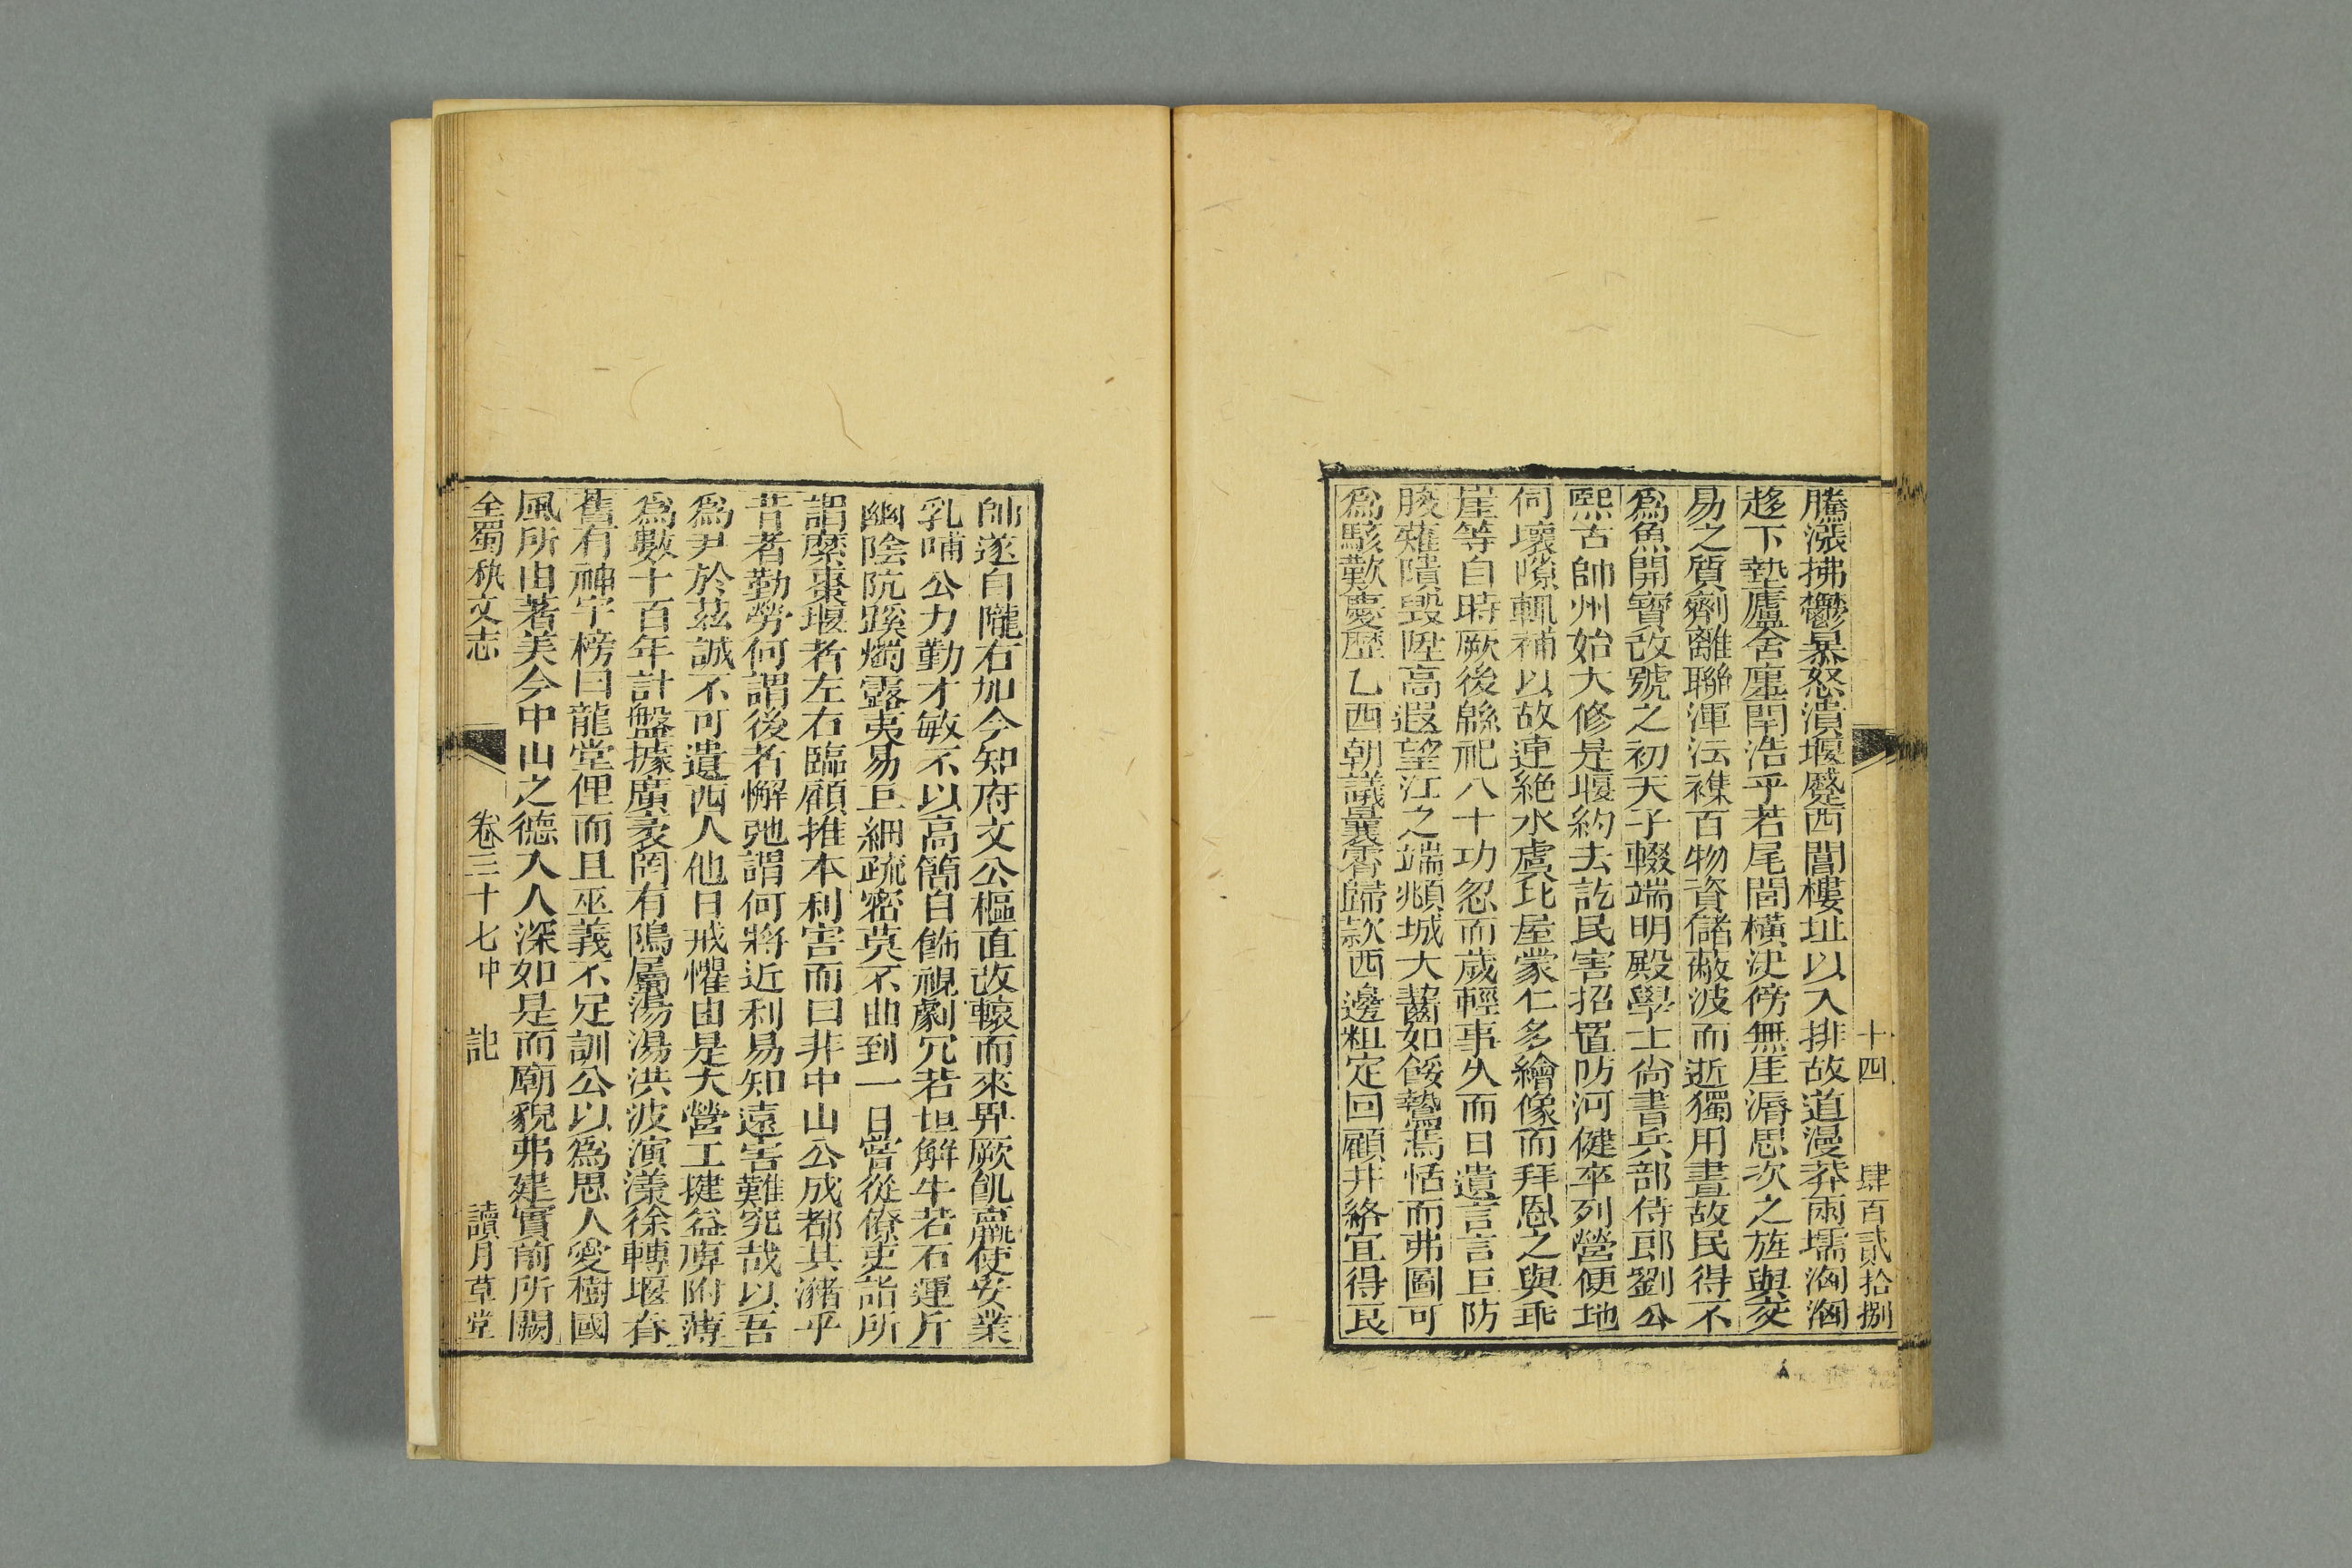 十四 肆百貳拾捌
騰漲拂鬱暴怒潰堰蹙西閶樓址以入排故道漫莽兩壖洶洶
趍下墊廬舍廛閈浩乎若尾閭橫決傍無厓漘思次之旌與交
易之質劑離聯渾沄襍百物資儲蔽波而逝獨用晝故民得不
爲魚開寶改號之初天子輟端明殿學士尙書兵部侍郎劉公
熙古帥州始大修是堰約去訖民害招置防河健卒列營便地
伺壞隙輒補以故連絕水虞比屋蒙仁多繪像而拜恩之與乖
崖等自時厥後緜祀八十功忽而歲輕事久而日遺言言巨防
朘薙隤毀陞高遐望江之端頫城大虀如餒鷙焉恬而弗圖可
爲駭歎慶歷乙酉朝議曩霄歸款西邊粗定回顧井絡宜得良
帥遂自隴右加今知府文公樞直改轅而來畀厥飢羸使安業
乳哺公力勤才敏不以高簡自飾視劇宂若坦解牛若石運斤
幽陰阬蹊燭露夷易巨細疏密莫不曲到一日嘗從僚吏詣所
謂縻棗堰者左右臨顧推本利害而曰非中山公成都其瀦乎
昔者勤勞何謂後者懈弛謂何將近利易知遠害難究哉以吾
爲尹於茲誠不可遺西人他日戒懼由是大營工揵益庳附薄
爲數十百年計盤據廣袤罔有隝屬湯湯洪波演漾徐轉堰舂
舊有神宇榜曰龍堂俚而且巫義不足訓公以爲思人愛樹國
風所由著美今中山之德入人深如是而廟貌弗建實前所闕
全蜀秇文志 卷三十七中 記 讀月草堂